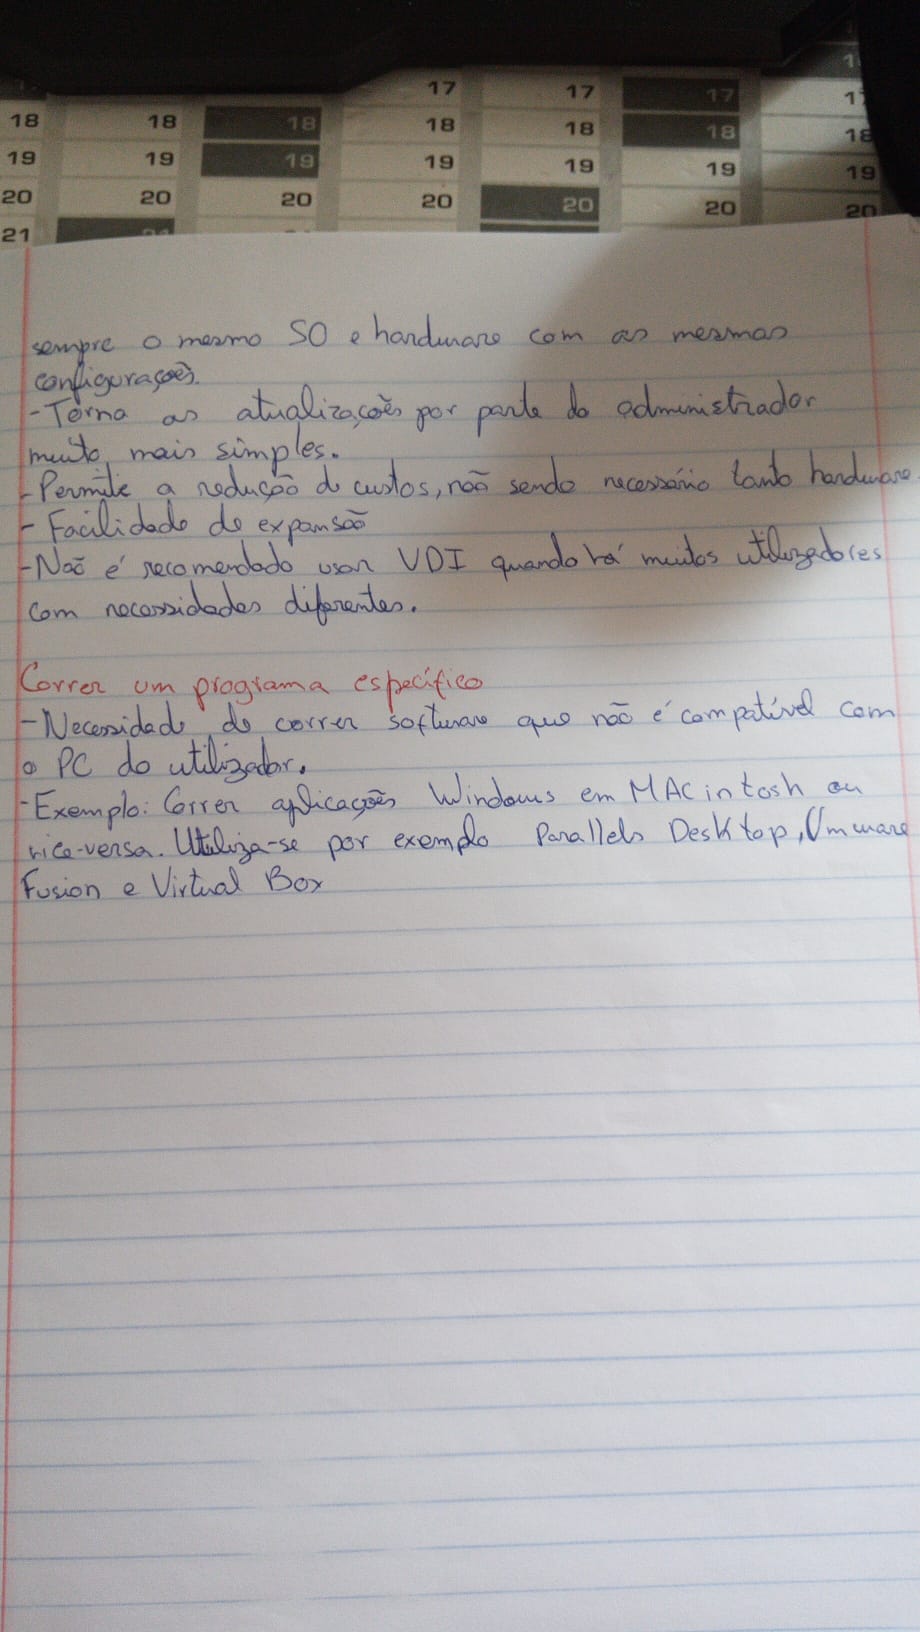 17 17 17 1
18 18 18 18 18 18 18
19 19 19 19 19 19 19
20 20 20 20 20 20 20
21
sempre o mesmo SO e hardware com as mesmas
configurações.
-Torna as atualizações por parte do administrador
muito mais simples.
-Permite a redução de custos, não sendo necessário tanto hardware.
- Facilidade de expansão
-Não é recomendado usar VDI quando há muitos utilizadores
com necessidades diferentes.
Correr um programa específico
-Necessidade de correr software que não é compatível com
o PC do utilizador.
-Exemplo: Correr aplicações Windows em MACintosh ou
vice-versa. Utiliza-se por exemplo Parallels Desktop, Vmware
Fusion e Virtual Box